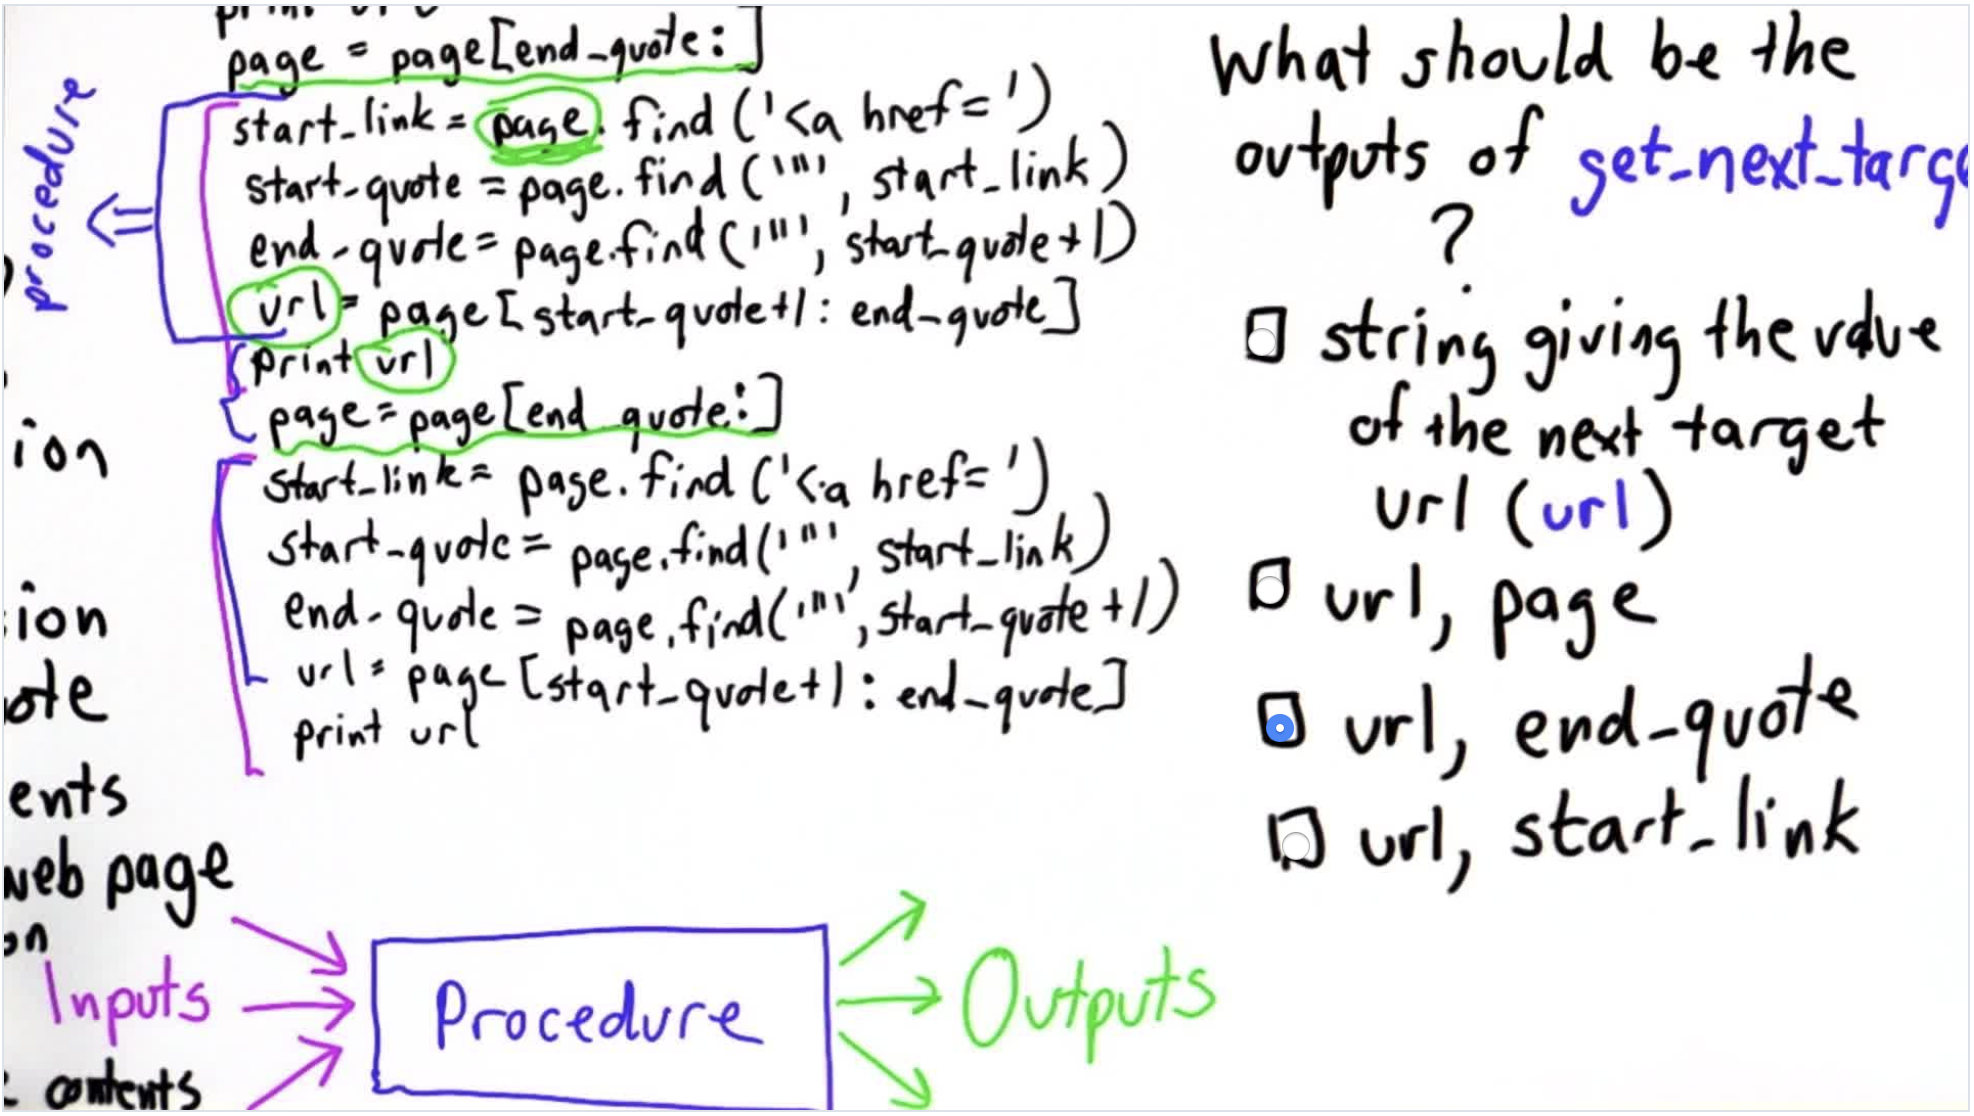 page = page[end_quote:]
procedure
start_link = page.find('<a href=')
start_quote = page.find('"', start_link)
end_quote = page.find('"', start_quote+1)
url = page[start_quote+1: end_quote]
print url
page = page[end quote:]
start_link = page.find('<a href=')
start_quote = page.find('"', start_link)
end_quote = page.find('"', start_quote+1)
url = page[start_quote+1: end_quote]
print url
ion
ion
ote
ents
web page
on
Inputs
contents
Procedure
Outputs
What should be the
outputs of get_next_targe
?
string giving the value
of the next target
url (url)
url, page
url, end_quote
url, start_link